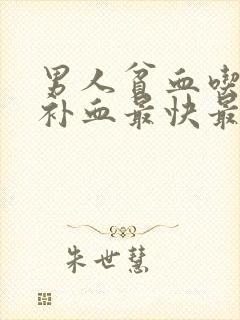 男人贫血喫
补血最快最
朱世慧